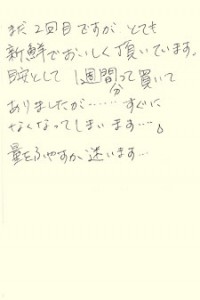 まだ2回目ですが とても
新鮮でおいしく頂いています。
目安として 1週間分って買いて
ありましたが……すぐに
なくなってしまいます…。
量をふやすか迷います…